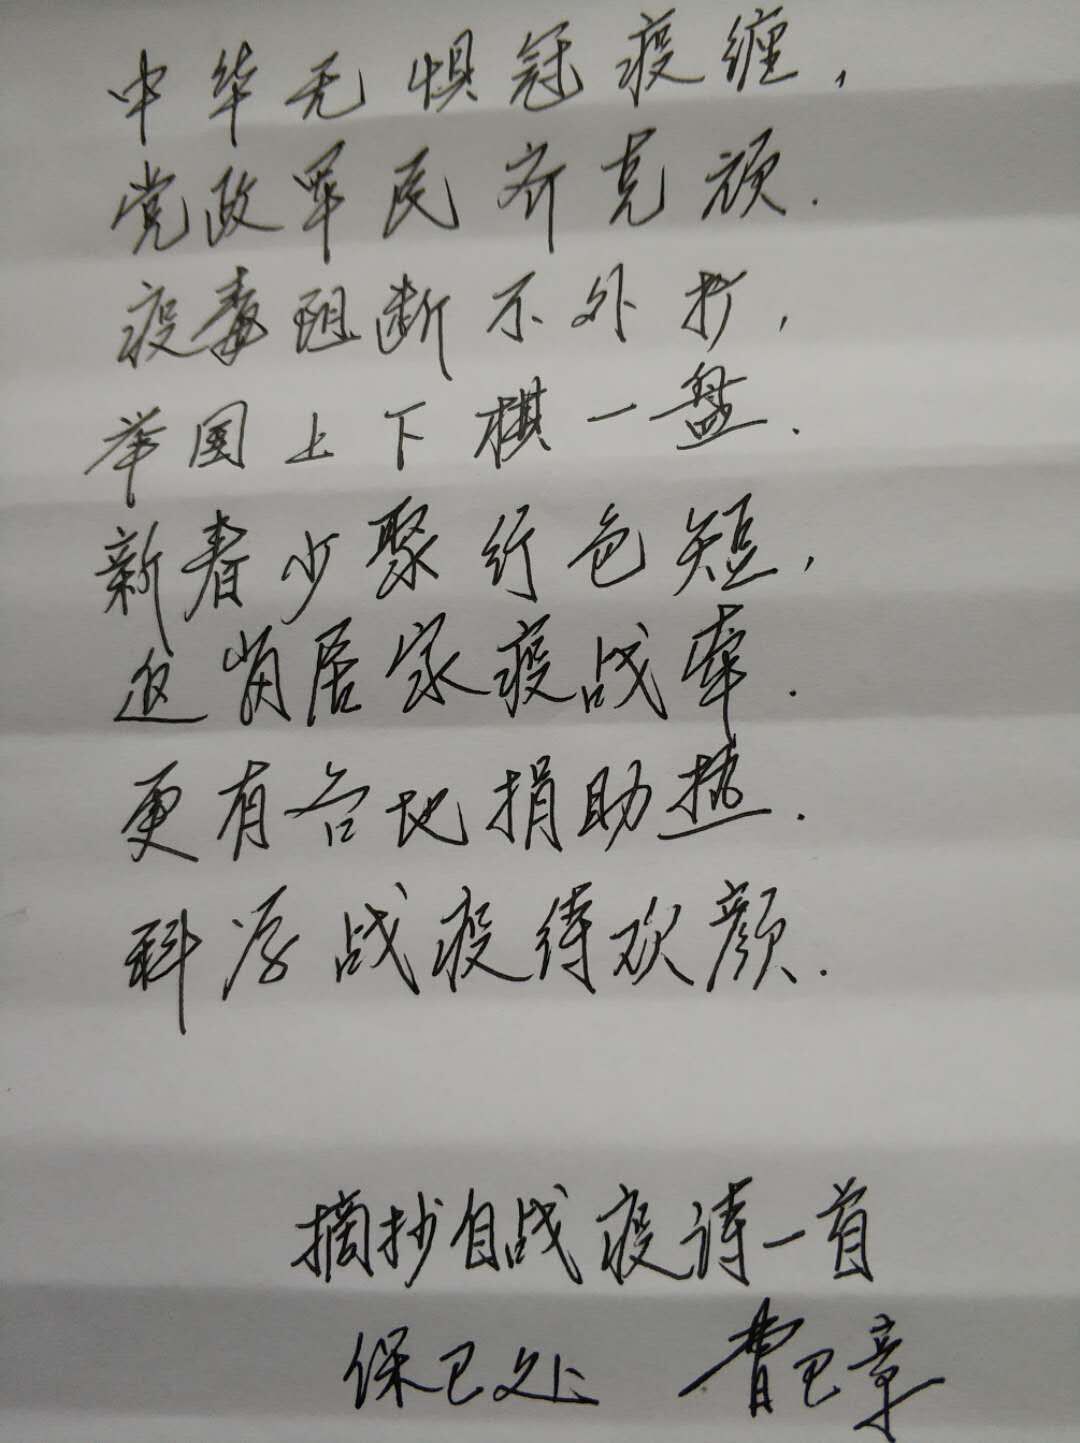 中华无惧冠疫缠，
党政军民齐克顽.
疫毒阻断不外扩，
举国上下棋一盘.
新春少聚行色短，
返岗居家疫战牵.
更有各地捐助热.
科学战疫待欢颜.
摘抄自战疫诗一首
保卫处 曹卫章